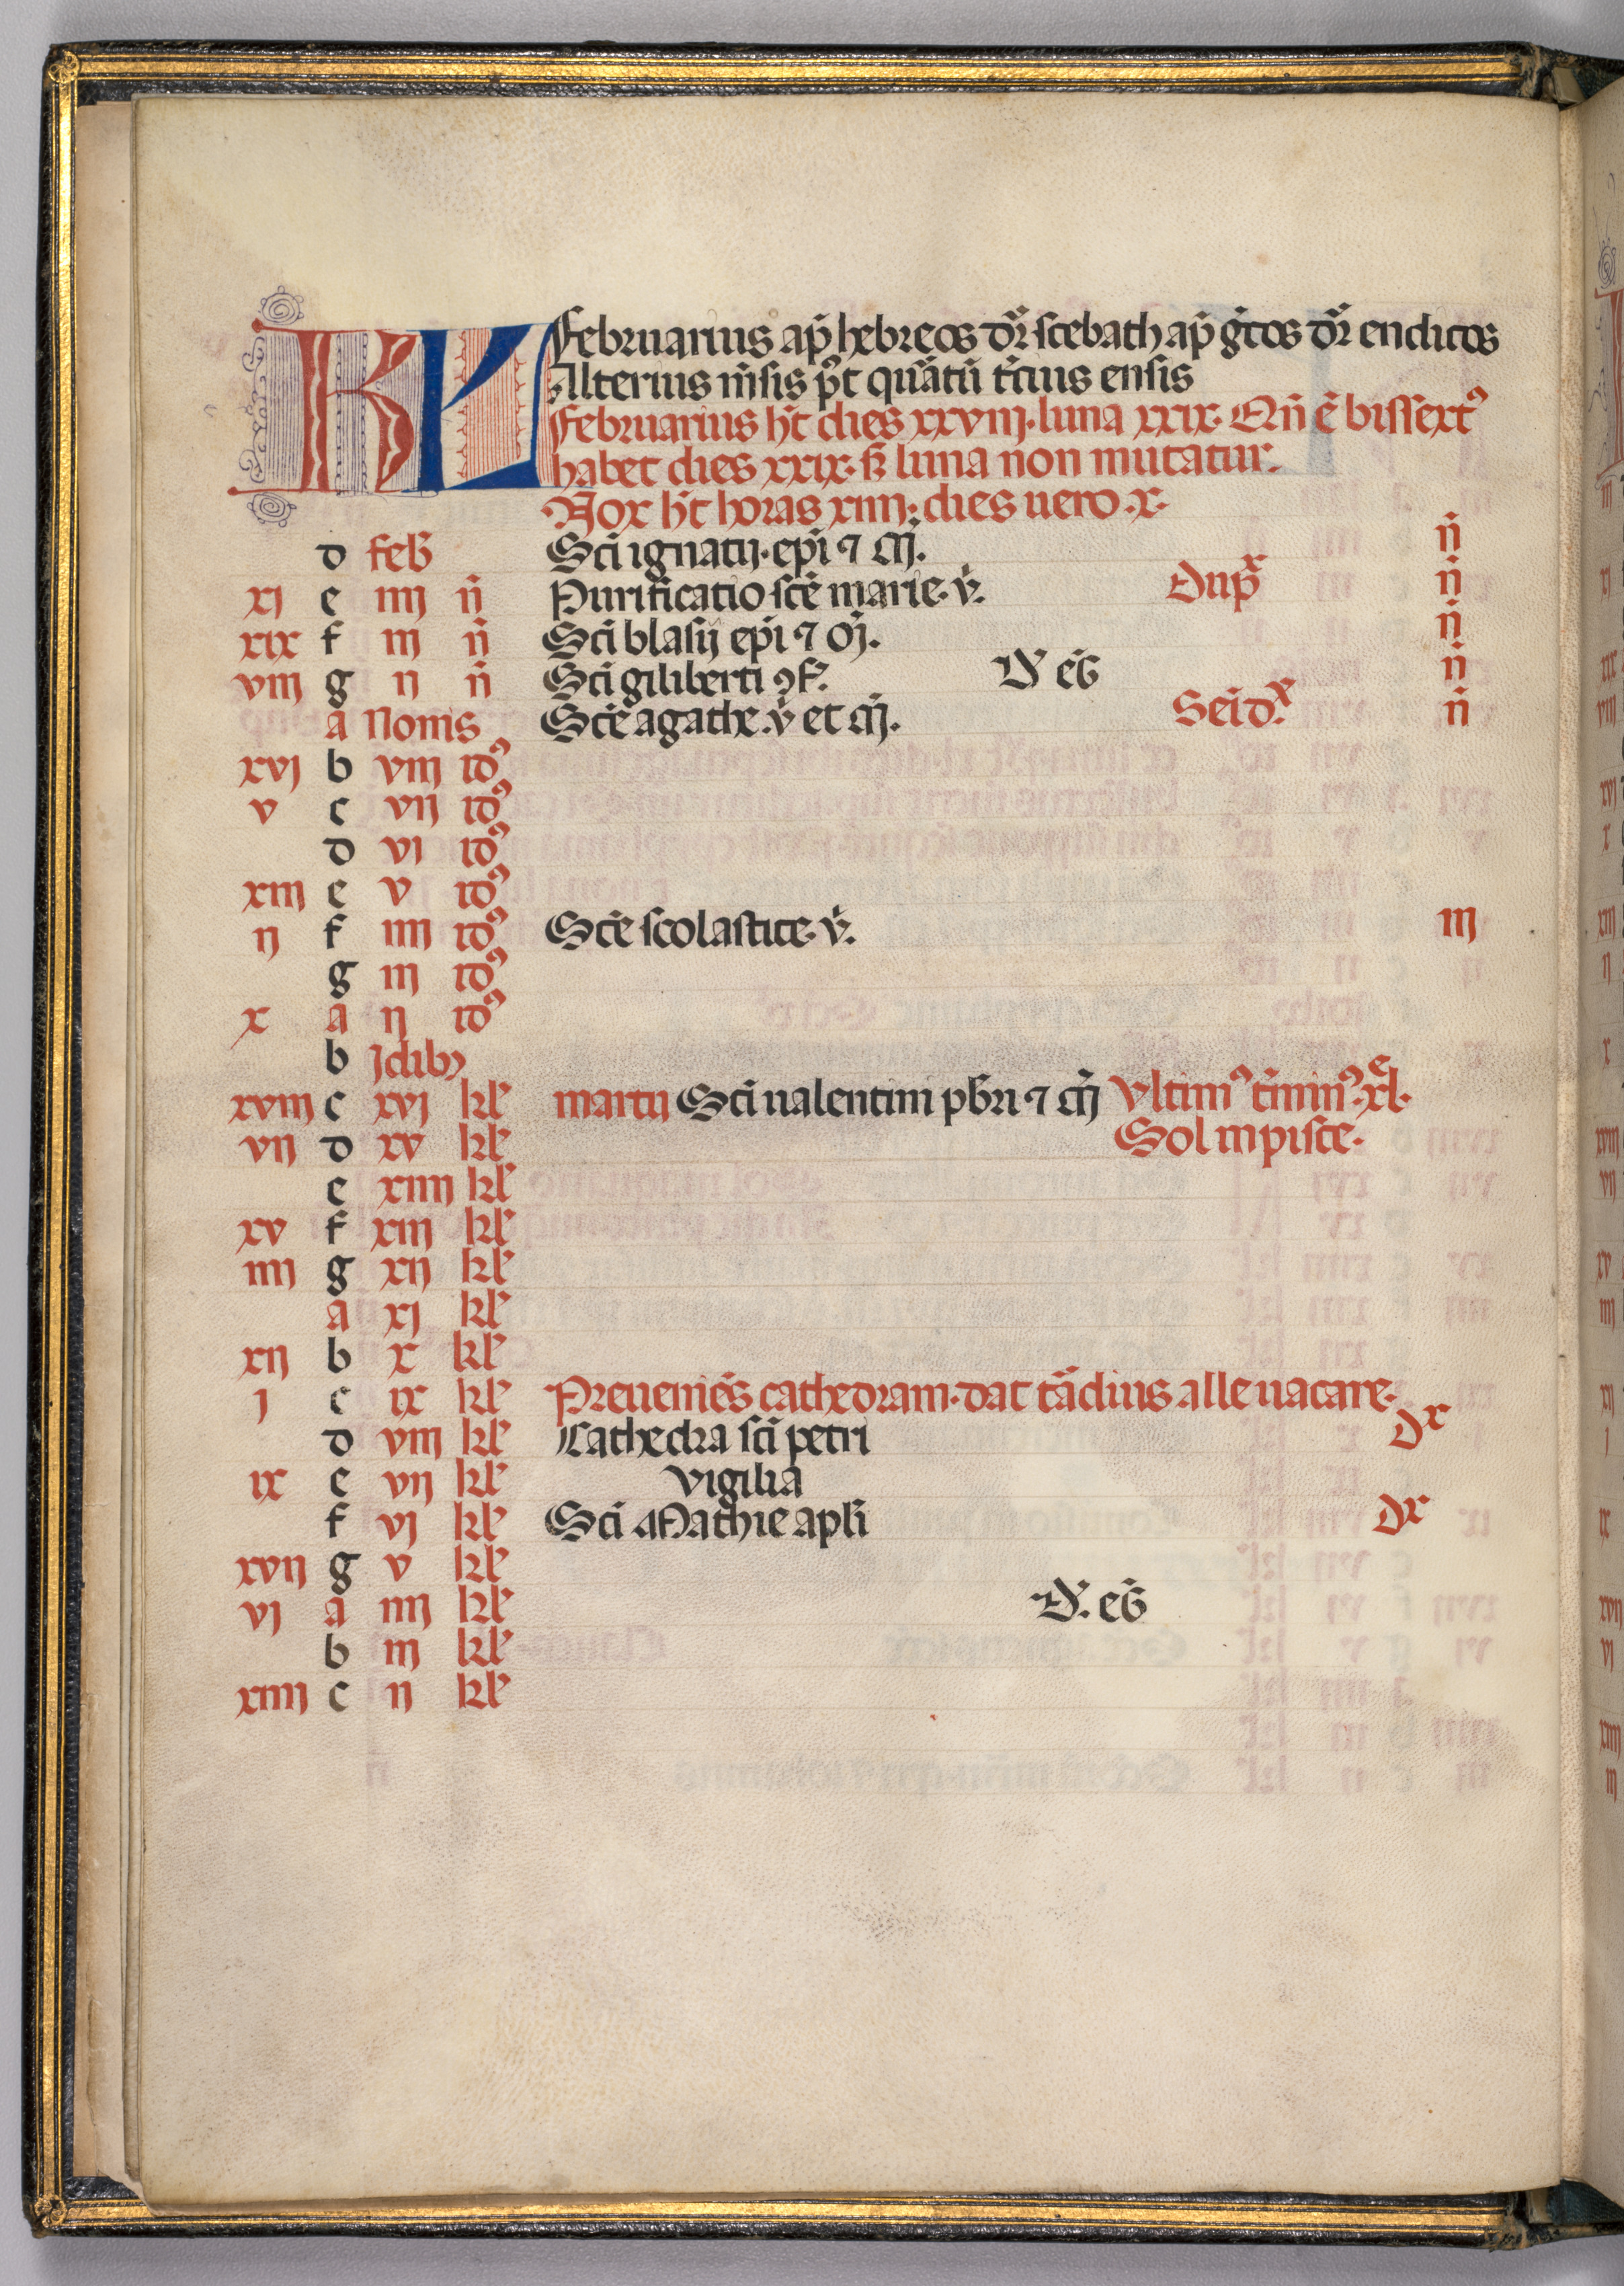 KL Februarius ap̄ hebreos dr̄ scebath ap̄ g̃cos dr̄ endicos
Alterius m̃sis p̃t quãtũ t̃cius ensis
Februarius h̃t dies xxviij. luna xxix. Qñ ẽ bissextꝰ
habet dies xxix. s̃ luna non mutatur.
Nox h̃t horas xiiij. dies uero .x.
d feb̃ Sc̃i ignatij. ep̃i ⁊ m̃. ñ
xj e iiij ñ Purificatio sc̃e marie. v̇. Dup̃x ñ
xix f iij ñ Sc̃i blasij ep̃i ⁊ m̃. ñ
viij g ij ñ Sc̃i giliberti ꝯf̃. D̃ eg̃ ñ
a Nonis Sc̃e agathe. v̇ et m̃. Sei᷑d.x ñ
xvj b viij idꝰ
v c vij idꝰ
d vi idꝰ
xiij e v idꝰ
ij f iiij idꝰ Sc̃e scolastice. v̇. iij
g iij idꝰ
x a ij idꝰ
b Idibꝫ
xviij c xvj kl̃ martij Sc̃i ualentini pb̃ri ⁊ m̃ Vltimꝰ t̃minꝰ. xl.e
vij d xv kl̃ Sol in pisce.
e xiiij kl̃
xv f xiij kl̃
iiij g xij kl̃
a xj kl̃
xij b x kl̃
j c ix kl̃ Preueniẽs cathedram. dat cãdius alle uacare.
d viij kl̃ Cathedra sc̃i petri Dx
ix e vij kl̃ vigilia
f vj kl̃ Sc̃i Mathie apl̃i Dx
xvij g v kl̃
vj a iiij kl̃ D̃. eg̃
b iij kl̃
xiiij c ij kl̃